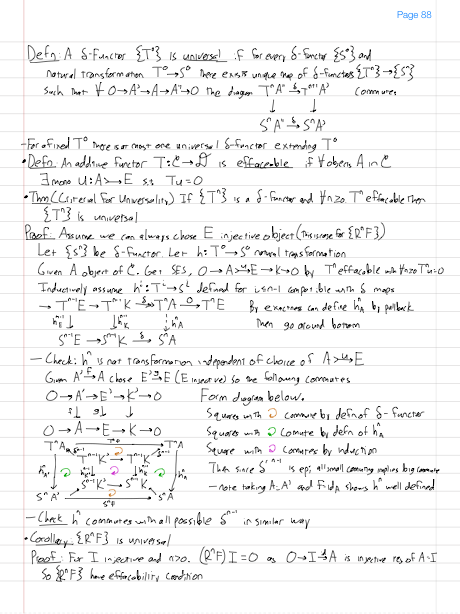 Page 88
Defn: A δ-Functor {T^n} is universal if for every δ-functor {S^n} and
natural transformation T^0→S^0 there exists unique map of δ-functors {T^n}→{S^n}
such that ∀ 0→A'→A→A''→0 the diagram T^nA'' -δ→ T^{n+1}A' commutes
↓ ↓
S^nA'' -δ→ S^nA'
-For a fixed T^0 there is at most one universal δ-functor extending T^0
•Defn: An additive functor T:C→D is effaceable if ∀ objects A in C
∃ mono u:A→E s.t. Tu=0
•Thm (Criteria for Universality) If {T^n} is a δ-functor and ∀n>0 T^n effaceable then
{T^n} is universal
Proof: Assume we can always chose E injective object (this is case for {R^nF})
Let {S^n} be δ-functor. Let h:T^0→S^0 natural transformation
Given A object of C. Get SES, 0→A -u→ E→K→0 by T^n effaceable with ∀n>0 T^nu=0
Inductively assume h^i:T^i→S^i defined for i≤n-1 compatible with δ maps
→ T^{n-1}E→T^{n-1}K -δ→ T^nA -0→ T^nE By exactness can define h^n_A by pullback
h^{n-1}_E↓ ↓h^{n-1}_K ↓h^n_A Then go around bottom
S^{n-1}E→S^{n-1}K -δ→ S^nA
— Check: h^n is nat transformation independent of choice of A -u→ E
Given A' -f→ A chose E' -g→ E (E injective) so the following commutes
0→A'→E'→K'→0 Form diagram below.
f↓ g↓ ↓ Squares with commute by defn of δ-functor
0→A→E→K→0 Squares with commute by defn of h^n_A
T^nA' T^nf T^nA Square with commutes by induction
T^{n-1}K'→T^{n-1}K Then since δ^{n-1} is epi, all small commuting implies big commute
S^{n-1}K'→S^{n-1}K —note taking A=A' and f=id_A shows h^n well defined
S^nA' S^nf S^nA
—Check h^n commutes with all possible δ^{n-1} in similar way
•Corollary: {R^nF} is universal
Proof: For I injective and n>0. (R^nF)I=0 as 0→I→A is injective res of A=I
So {R^nF} have effacability condition